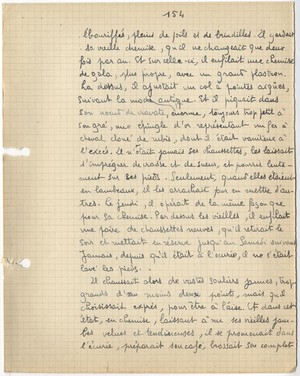 154
ébouriffés, pleins de poils et de brindilles. Il gardait
sa vieille chemise, qu'il ne changeait que deux
fois par an. Et sur celle-ci, il enfilait une chemise
de gala, plus propre, avec un grand plastron.
Là dessus, il ajustait un col à pointes aigües,
suivant la mode antique. Et il piquait dans
son nœud de cravate, énorme, toujours trop petit à
son gré, une épingle d'or représentant un fer à
cheval, clouté de rubis, dont il était vaniteux à
l'excès. Il n'ôtait jamais ses chaussettes, les laissait
s'imprégner de crasse et de sueur, et pourrir lente-
ment sur ses pieds. Seulement, quand elles étaient
en lambeaux, il les arrachait pour en mettre d'au-
tres. Le jeudi, il opérait de la même façon que
pour sa chemise. Par dessus les vieilles, il enfilait
une paire de chaussettes neuves, qu'il retirait le
soir et mettait en réserve jusqu'au Samedi suivant
Jamais, depuis qu'il était à l'écurie, il ne s'était
lavé les pieds.
Il chaussait alors de vastes souliers jaunes, trop
grands d'au moins deux points, mais qu'il
choisissait exprès, pour être à l'aise. Et dans cet
état, en chemise, laissant à nu ses vieilles jam-
bes velues et tendineuses, il se promenait dans
l'écurie, préparait son café, brossait son complet